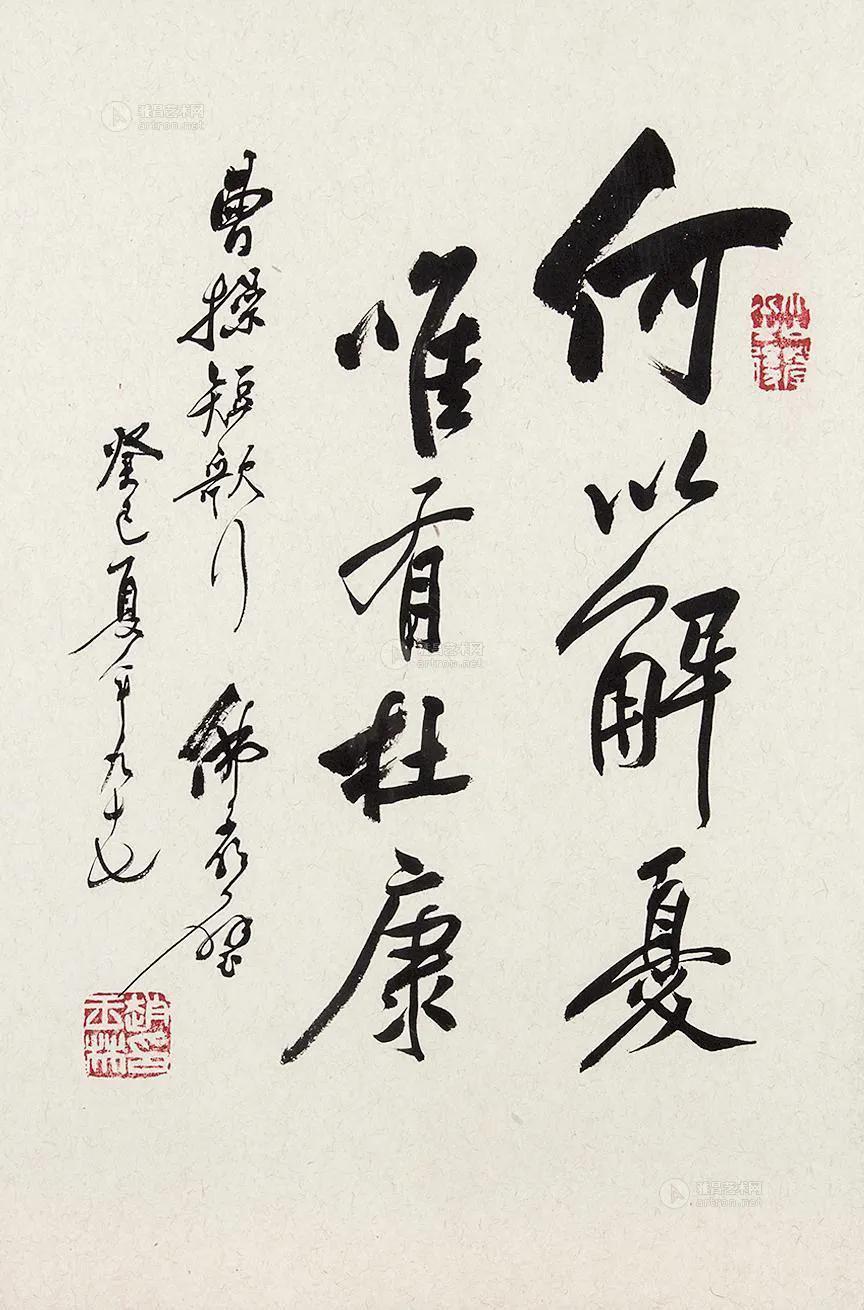 何以解憂
唯有杜康
曹操短歌行 佛
癸巳夏年九十七
趙印玉林
雅昌艺术网
artron.net
雅昌艺术网
artron.net
雅昌艺术网
artron.net